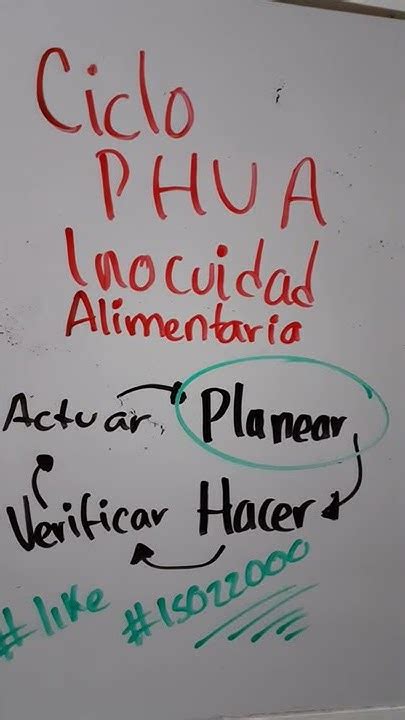 Ciclo
PHVA
Inocuidad
Alimentaria
Actuar Planear
Verificar Hacer
#like #ISO22000